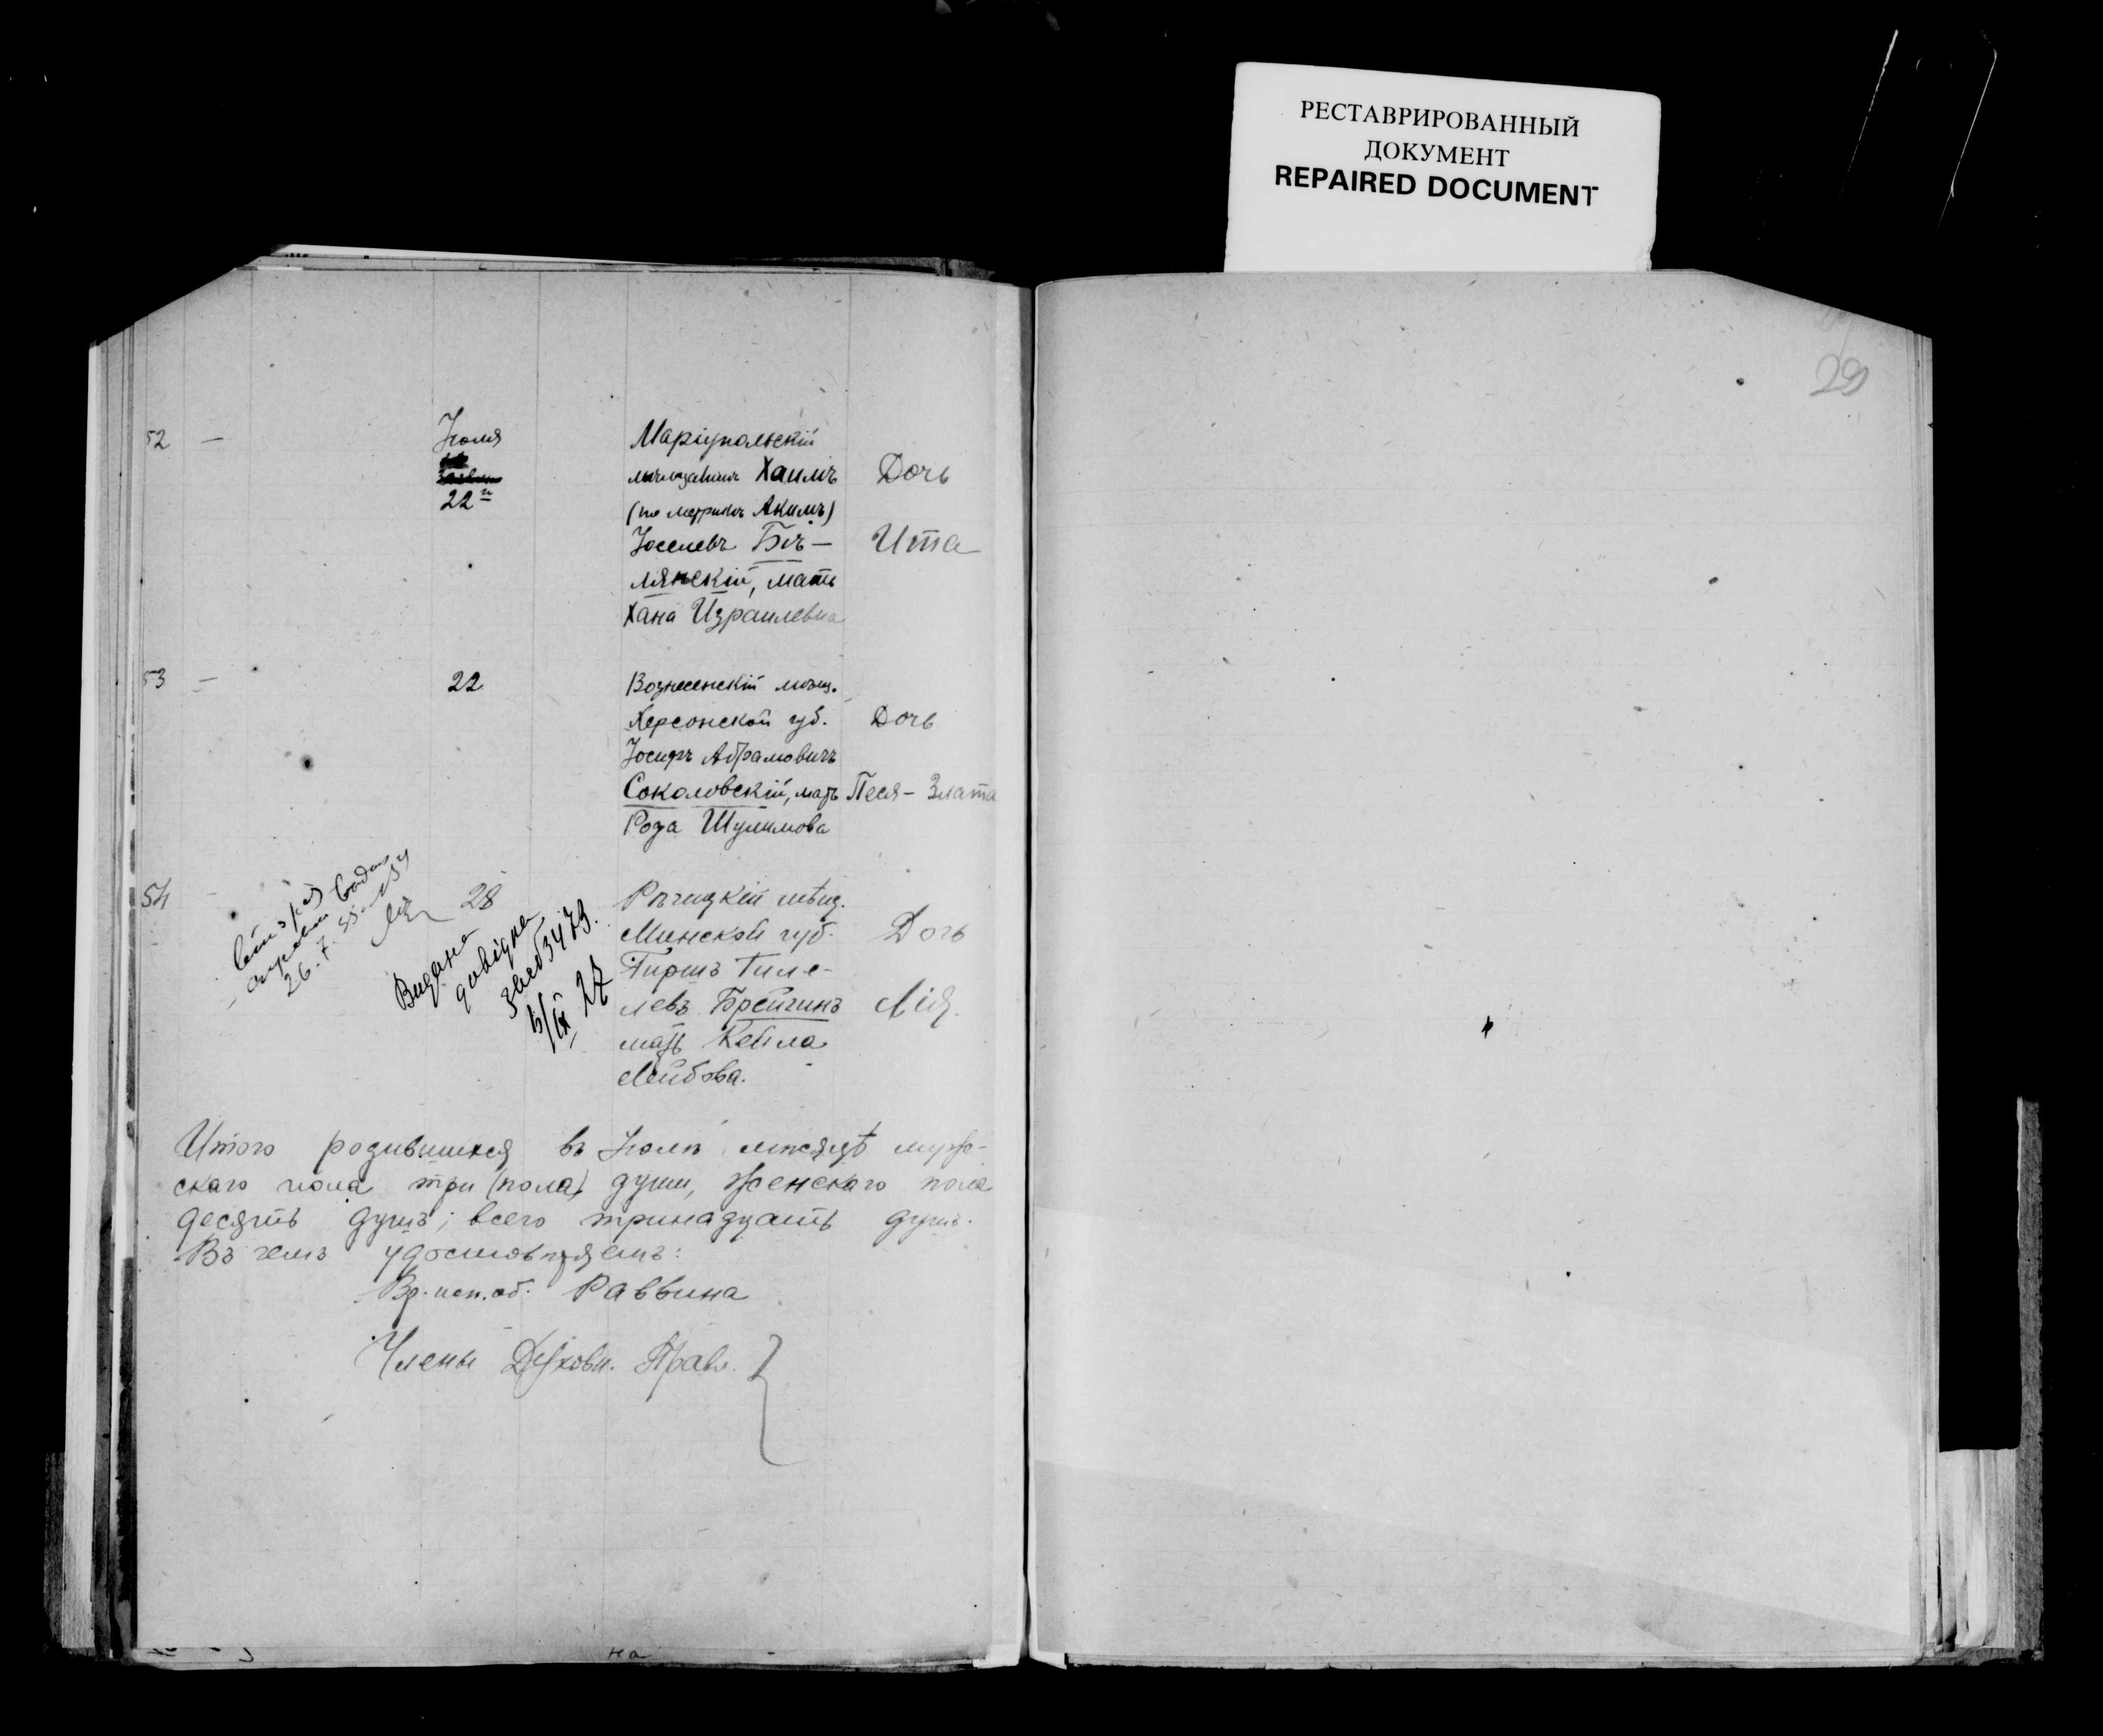 РЕСТАВРИРОВАННЫЙ
ДОКУМЕНТ
REPAIRED DOCUMENT
29
52 — Іюля
22го
Маріупольскій
мѣщанинъ Хаимъ
(по метрикѣ Акимъ)
Іоселевъ Бѣ—
лянскій, мать
Хана Израилевна
Дочь
Ита
53 — 22
Вознесенскій мѣщ.
Херсонской губ.
Іосифъ Абрамовичъ
Соколовскій, мать
Роза Шулимова
Дочь
Песя - Злата
54 - 28
26.7.
Видана
довідка
3479.
27
Рѣчицкій мѣщ.
Минской губ.
Гиршъ Гиле-
левъ Брейгинъ
мать Кейла
Лейбова.
Дочь
Лія.
Итого родившихся въ Іюлѣ мѣсяцѣ муж-
скаго пола три (пола) души, женскаго пола
десять душъ; всего тринадцать душъ.
Въ чемъ удостовѣряемъ:
Вр. исп. об. Раввина
Члены Духовн. Правл.
на